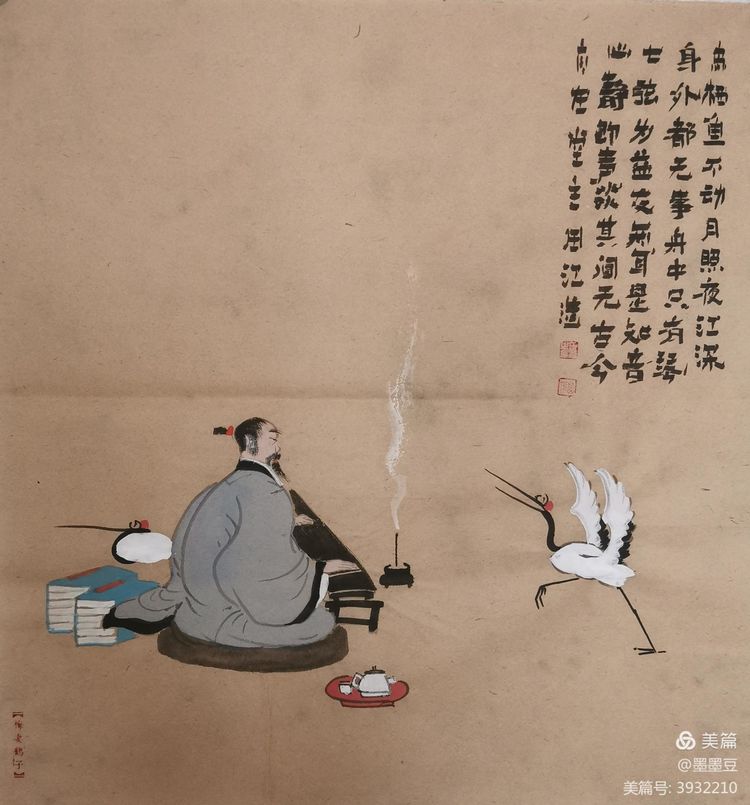 鸟栖鱼不动月照夜江深
身外都无事舟中只有琴
七弦为益友两耳是知音
心静即声淡其间无古今
左堂主周江造
美篇
@墨墨豆
美篇号: 3932210